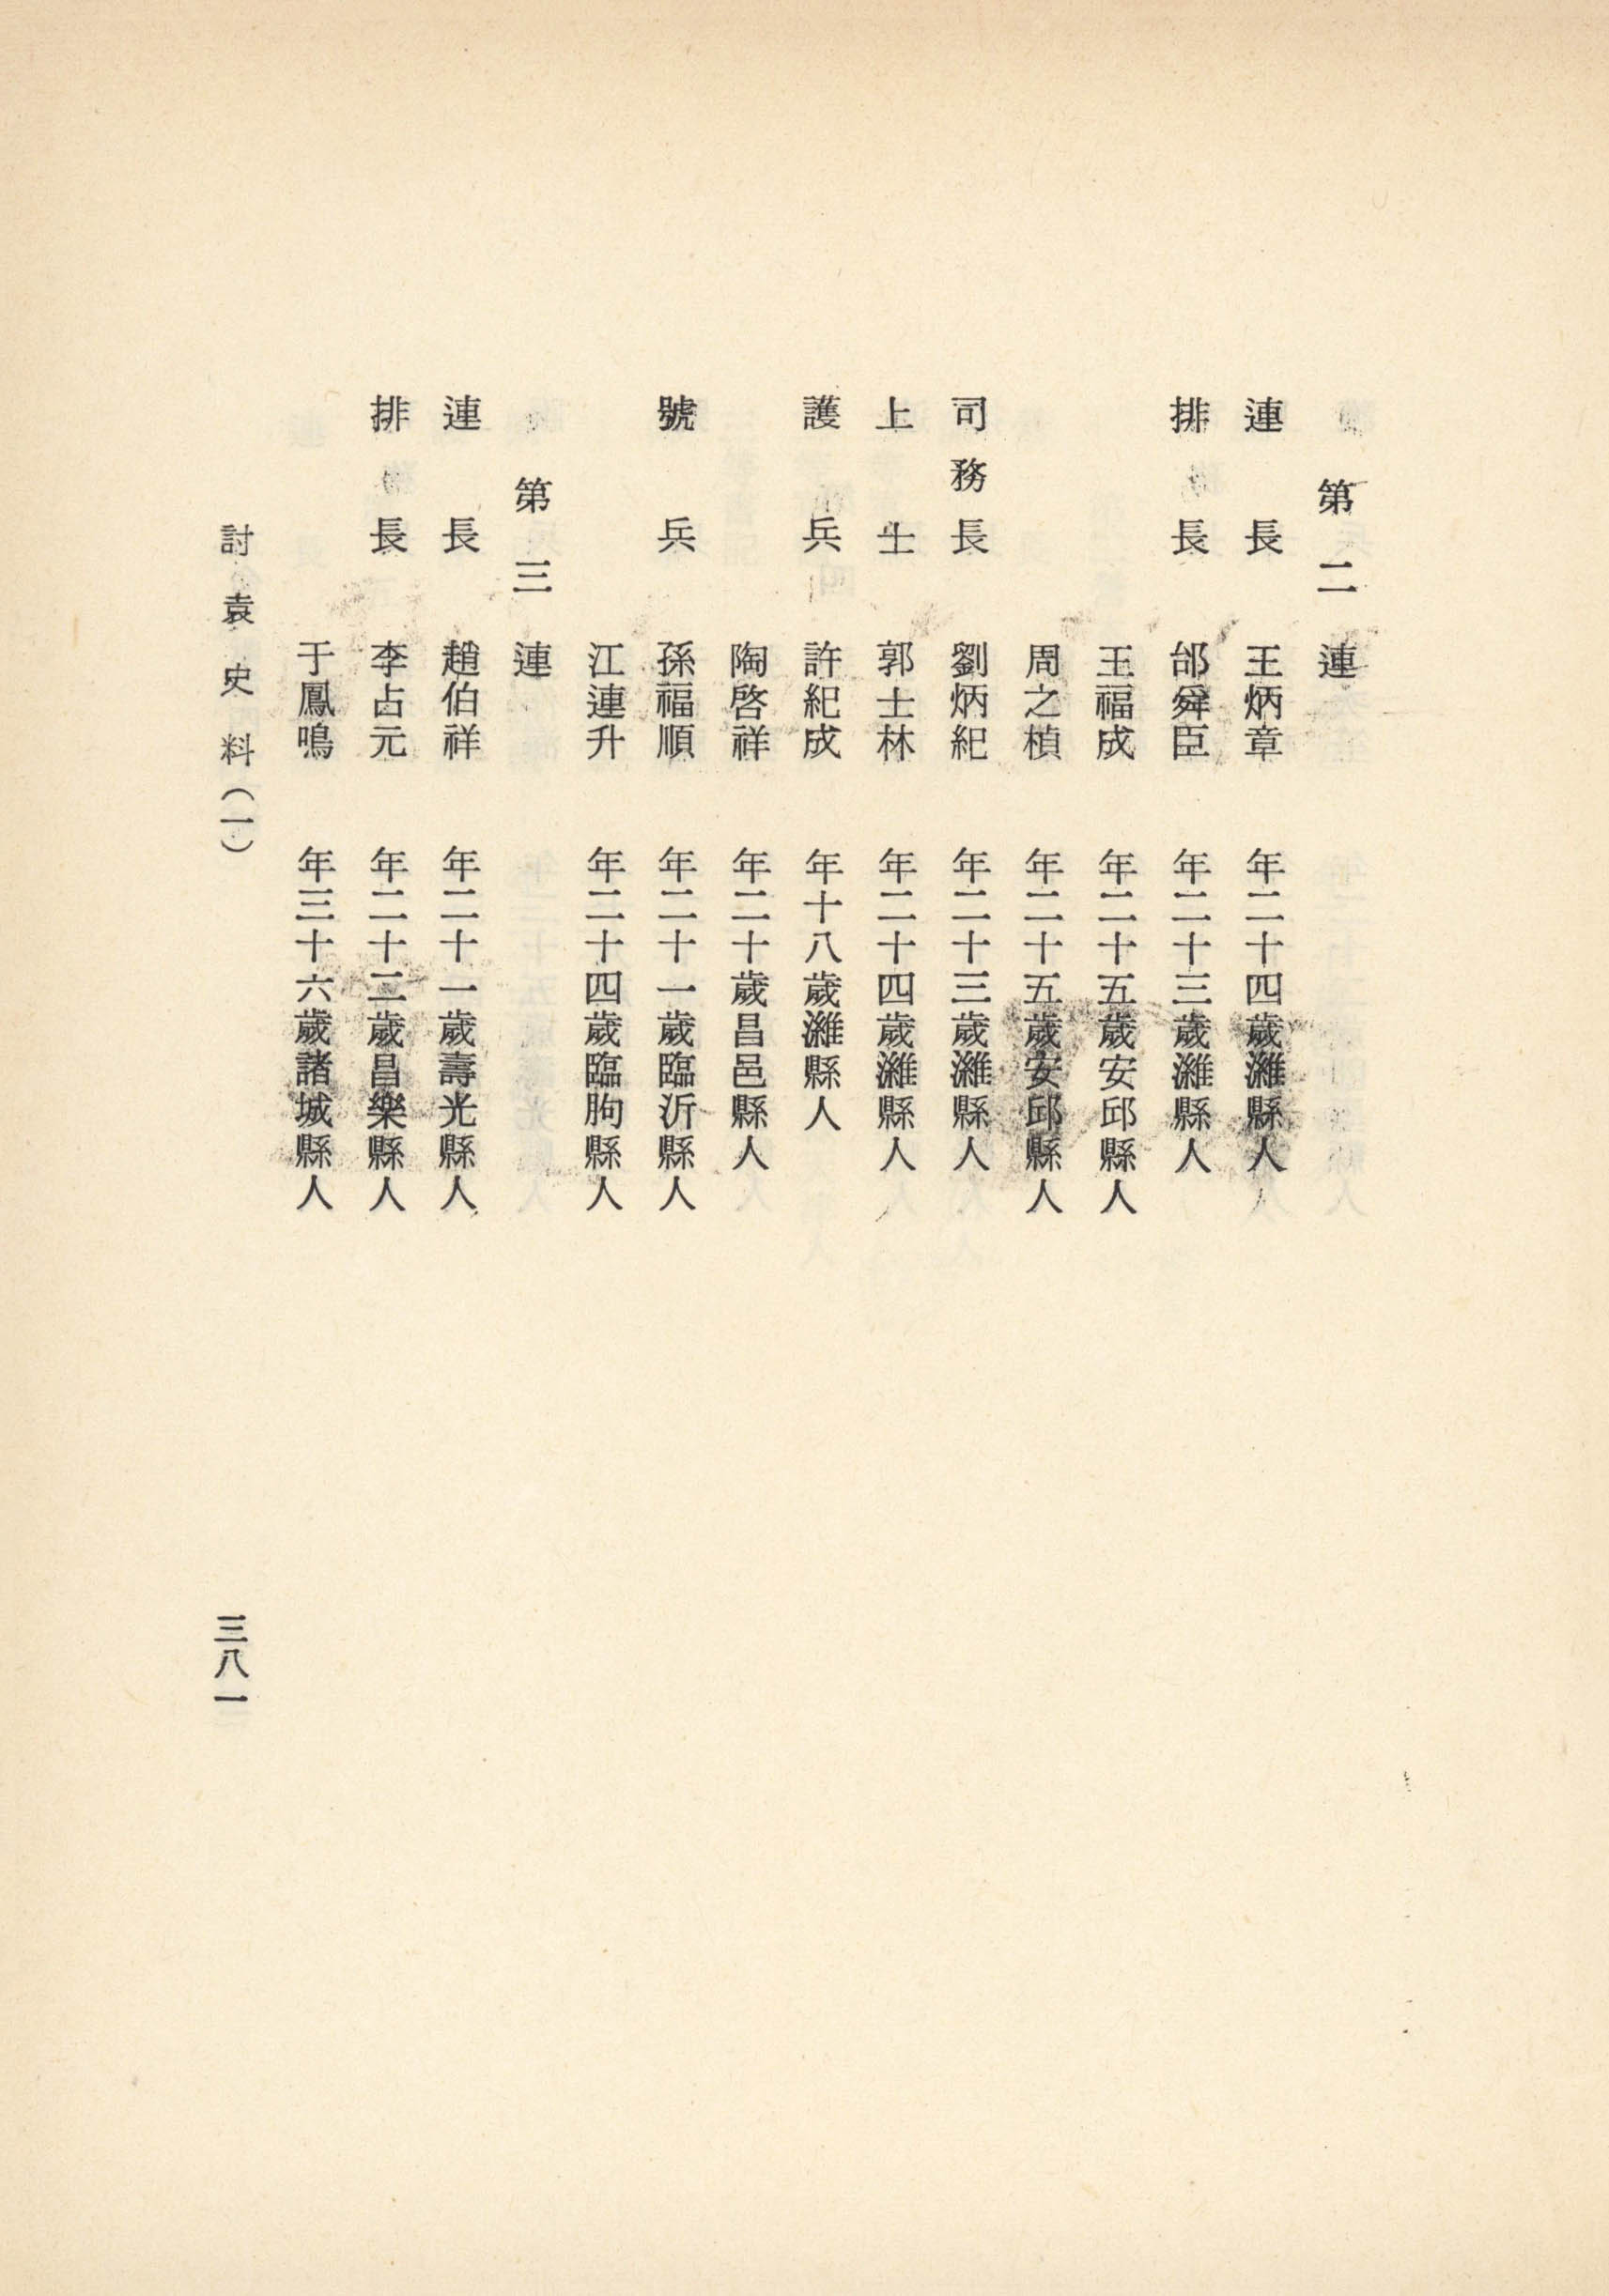 第二連
連長　王炳章　年二十四歲濰縣人
排長　邰舜臣　年二十三歲濰縣人
王福成　年二十五歲安邱縣人
周之楨　年二十五歲安邱縣人
司務長　劉炳紀　年二十三歲濰縣人
上士　郭士林　年二十四歲濰縣人
護兵　許紀成　年十八歲濰縣人
陶啓祥　年二十歲昌邑縣人
號兵　孫福順　年二十一歲臨沂縣人
江連升　年二十四歲臨朐縣人
第三連
連長　趙伯祥　年二十一歲壽光縣人
排長　李占元　年二十三歲昌樂縣人
于鳳鳴　年三十六歲諸城縣人
討袁史料（一）
三八一